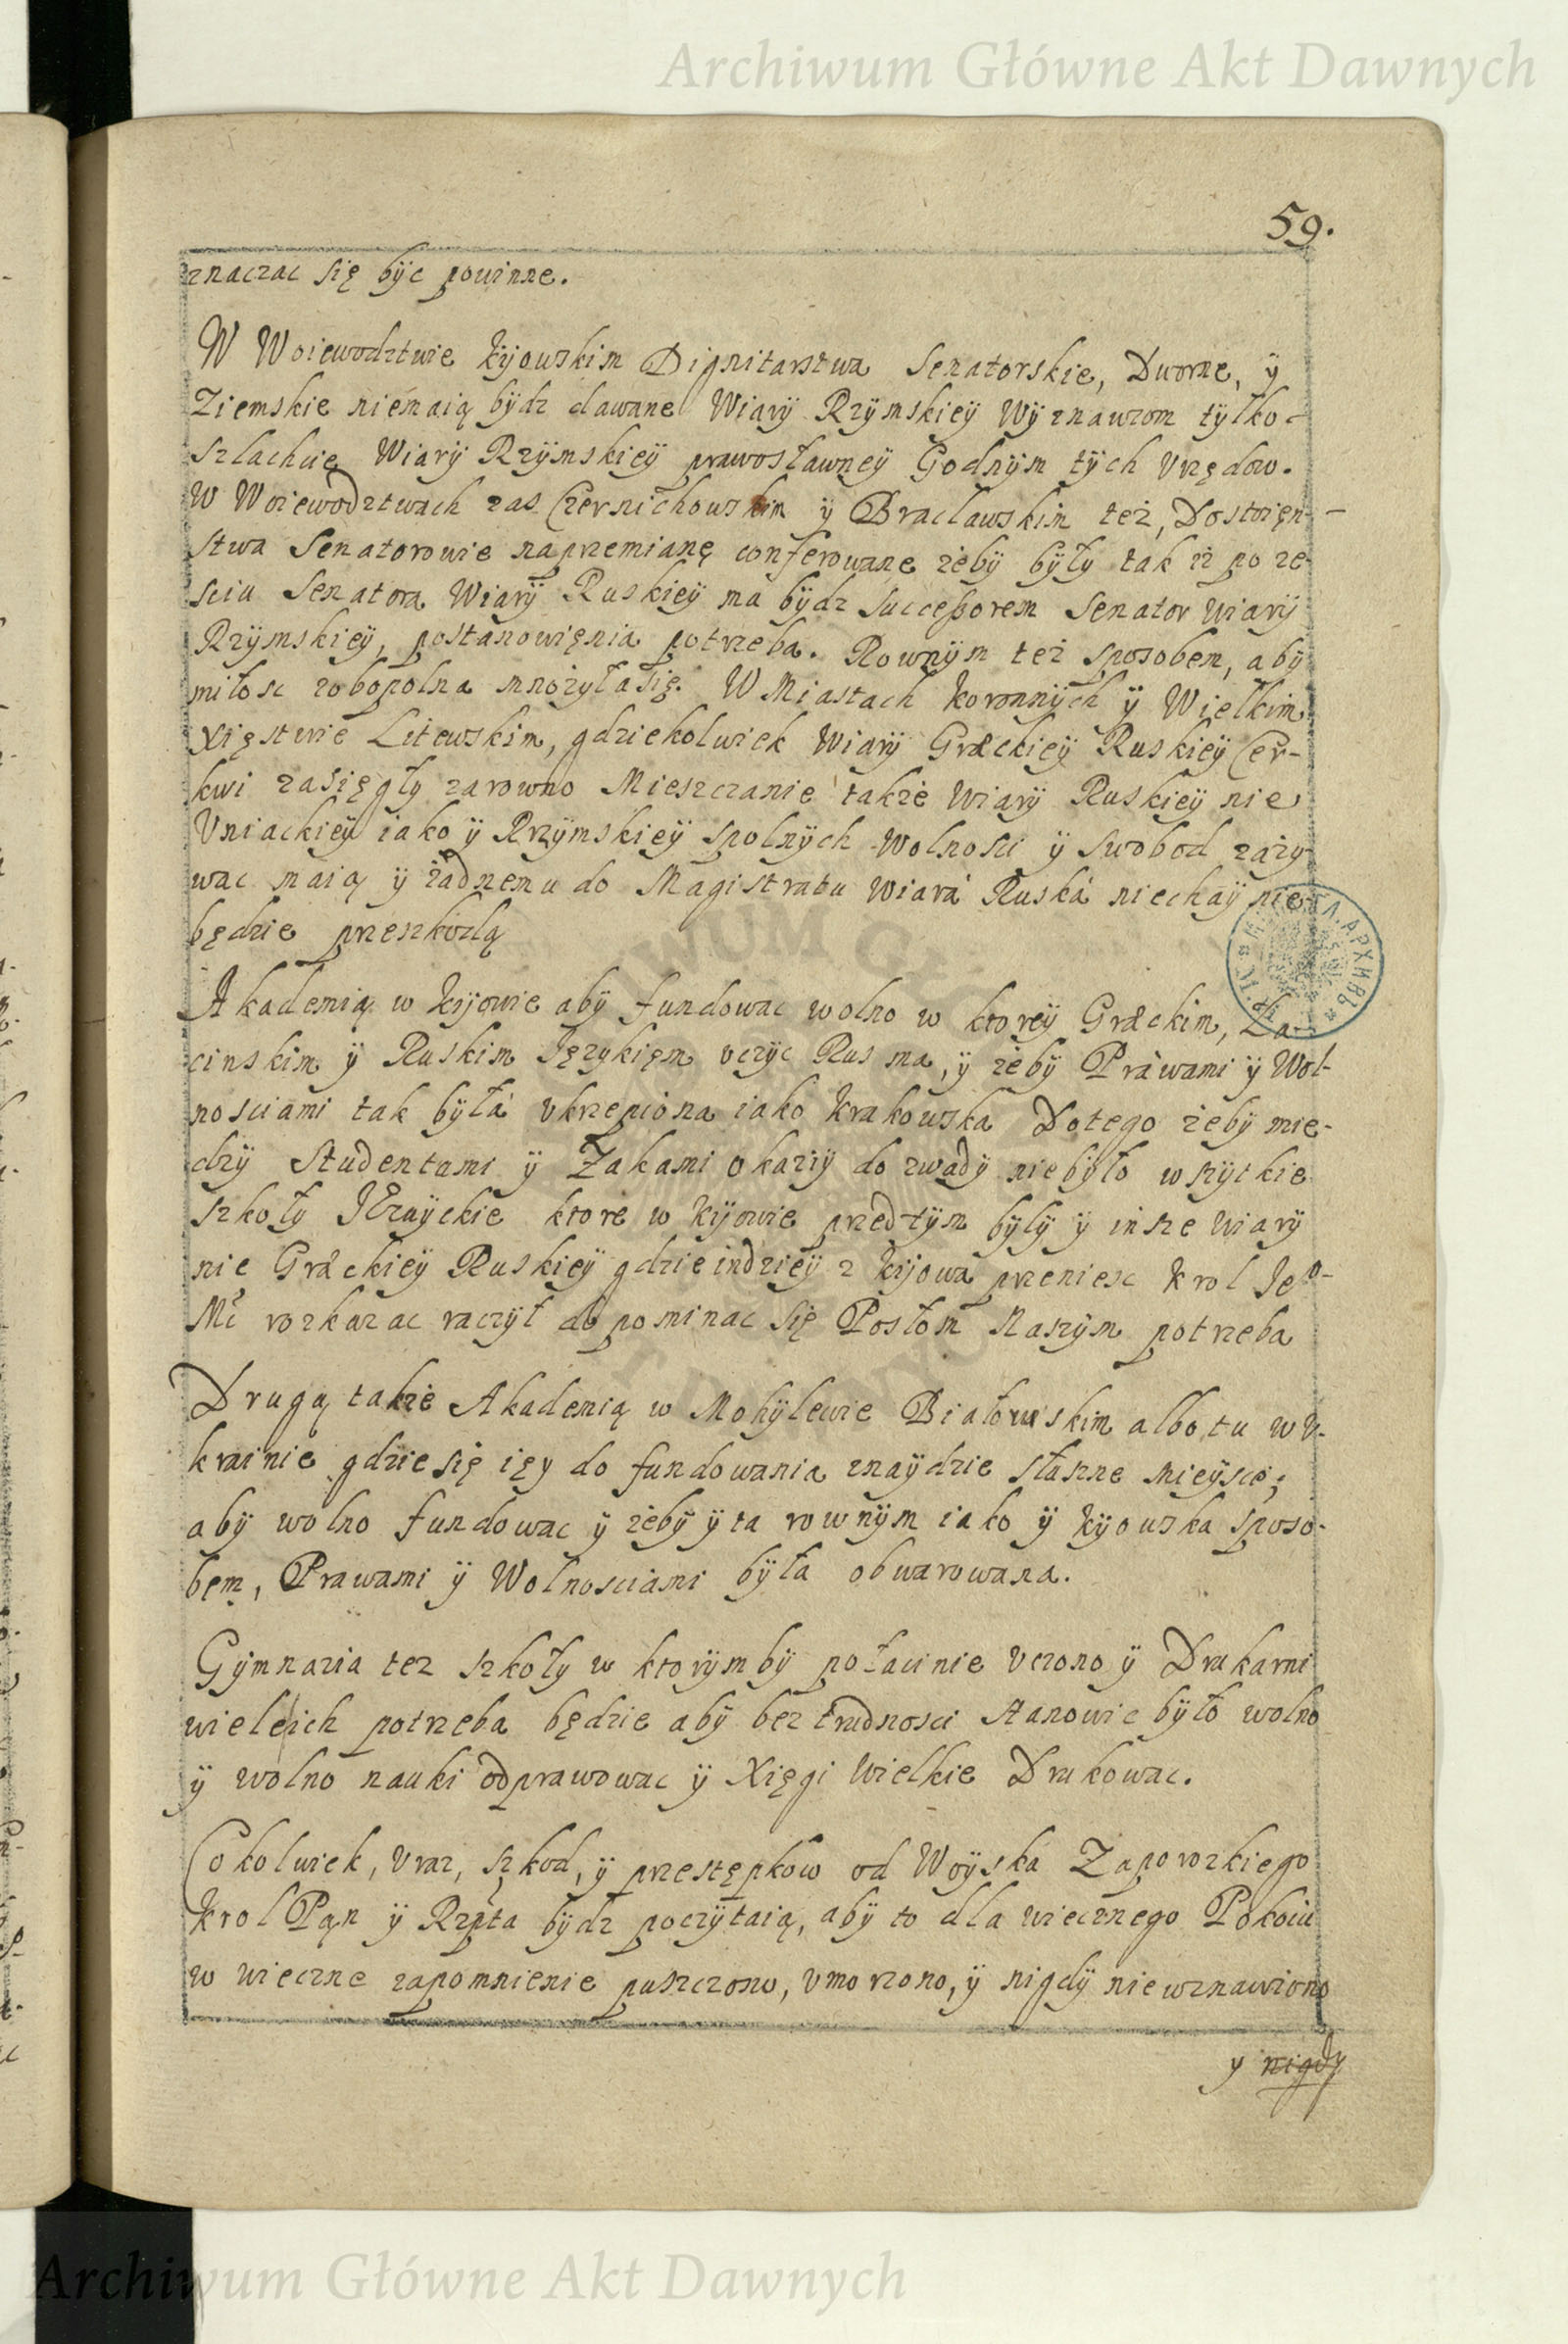 Archiwum Główne Akt Dawnych
59.
znaczac się bÿc powinne.
W Woiewodztwie Kÿowskim Dignitarstwa Senatorskie, Dworne, ÿ
Ziemskie niemaią bÿdz dawane Wiarÿ Rzÿmskieÿ Wÿznawcom tÿlko
Szlachcie Wiarÿ Rzÿmskieÿ prawosławneÿ Godnÿm tÿch Vrzędow.
W Woiewodztwach zas Czernichowskim ÿ Braclawskim też, Dostoięn-
stwa Senatorowie naprzemianę conferowane żebÿ bÿłÿ tak iż po ze-
sciu Senatora Wiarÿ Ruskieÿ ma bÿdz Successorem Senator Wiarÿ
Rzÿmskieÿ, postanowięnia potrzeba. Rownÿm też sposobem, abÿ
miłosc zobopolna mnożÿłasię. W Miastach Koronnÿch ÿ Wielkim
Xięstwie Litewskim, gdziekolwiek Wiarÿ Græckieÿ Ruskieÿ Cer-
kwi zasięgłÿ zarowno Mieszczanie także Wiarÿ Ruskieÿ nie
Vniackieÿ iako ÿ Rzÿmskieÿ spolnÿch Wolnosci ÿ Swobod zażÿ
wac maią ÿ żadnemu do Magistratu Wiara Ruska niechaÿ nie
będzie przeszkodą
Akademią w Kijowie abÿ fundowac wolno w ktoreÿ Græckim, La-
cinskim ÿ Ruskim Językięm vczÿc Rus ma, ÿ żebÿ Prawami ÿ Wol-
nosciami tak bÿła vkrzepiona iako Krakowska Dotego żebÿ mie-
dzÿ Studentami ÿ Żakami okaziÿ do zwadÿ niebÿło wszÿtkie
szkołÿ JEzuÿckie ktore w Kijowie przedtÿm bÿłÿ ÿ insze Wiarÿ
nie Græckieÿ Ruskieÿ gdzieindzieÿ z Kijowa przeniesc Krol Jeo-
Mc rozkazac raczÿł dopominac się Posłom Naszÿm potrzeba
Drugą także Akademią w Mohÿlewie Białoruskim albo tu w V-
krainie gdzie się ięy do fundowania znaÿdzie słuszne mieÿsce;
abÿ wolno fundowac ÿ żebÿ ÿ ta rownÿm iako ÿ Kÿowska sposo-
bem, Prawami ÿ Wolnosciami bÿła obwarowana.
Gÿmnazia tez szkołÿ w ktorÿmbÿ połacinie vczono ÿ Drukarni
wiele ich potrzeba będzie abÿ bez trudnosci stanowic bÿło wolno
ÿ wolno nauki odprawowac ÿ Xięgi Wielkie Drukowac.
Cokolwiek, Vraz, szkod, ÿ przestępkow od Woÿska Zaporozkiego
Krol Pan ÿ Rzpta bÿdz poczÿtaią, abÿ to dla wiecznego Pokoiu
w wieczne zapomnienie puszczono, vmorzono, ÿ nigdÿ niewznawiono
y nigdy
Archiwum Główne Akt Dawnych